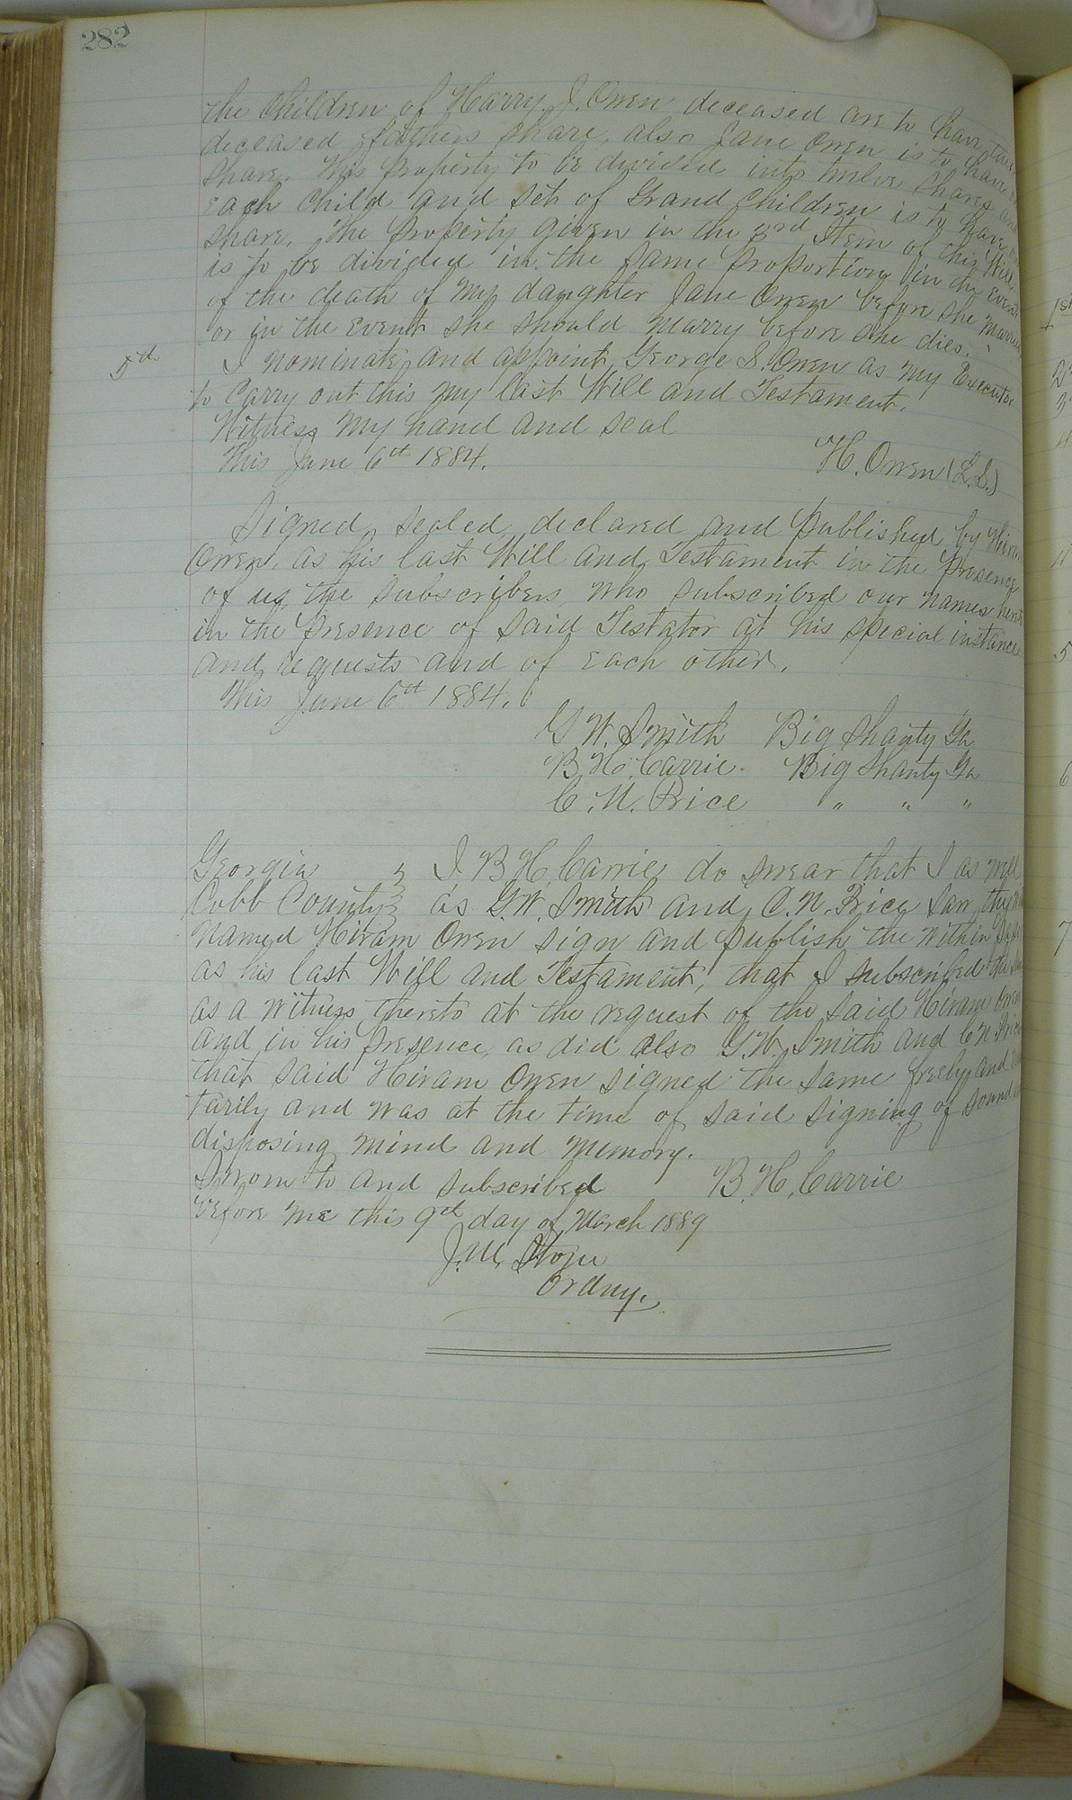 282
the Children of Harry J. Owen deceased are to have their
deceased fathers share, also Jane Owen is to have
share. This Property to be divided into twelve shares and
each Child and set of Grand Children is to have
share. The Property given in the 3rd Item of this Will
is to be divided in the same proportion in the event
of the death of my daughter Jane Owen before she marries
or in the event she should marry before she dies.
5th I nominate and appoint George S. Owen as my Executor
to carry out this my last Will and Testament.
Witness my hand and seal
This June 6th 1884.
H. Owen (L.S.)
Signed, sealed, declared and Published by Hiram
Owen as his last Will and Testament in the presence
of us the subscribers who subscribed our names hereto
in the presence of said Testator at his special instance
and requests and of each other.
This June 6th 1884.
G W. Smith Big Shanty Ga
B. H. Carrie. Big Shanty Ga
C. N. Price " " "
Georgia } I. B. H. Carrie do swear that I as well
Cobb County } as G.W. Smith and C.N. Price saw the
named Hiram Owen sign and publish the within
as his last Will and Testament, that I subscribed the
as a witness thereto at the request of the said Hiram Owen
and in his presence as did also G.W. Smith and C N Price
that said Hiram Owen signed the same freely and
tarily and was at the time of said signing of sound
disposing mind and memory.
Sworn to and subscribed B. H. Carrie
before me this 9th day of March 1889
J. M. Stone
Ordny.
1st
5
6
7